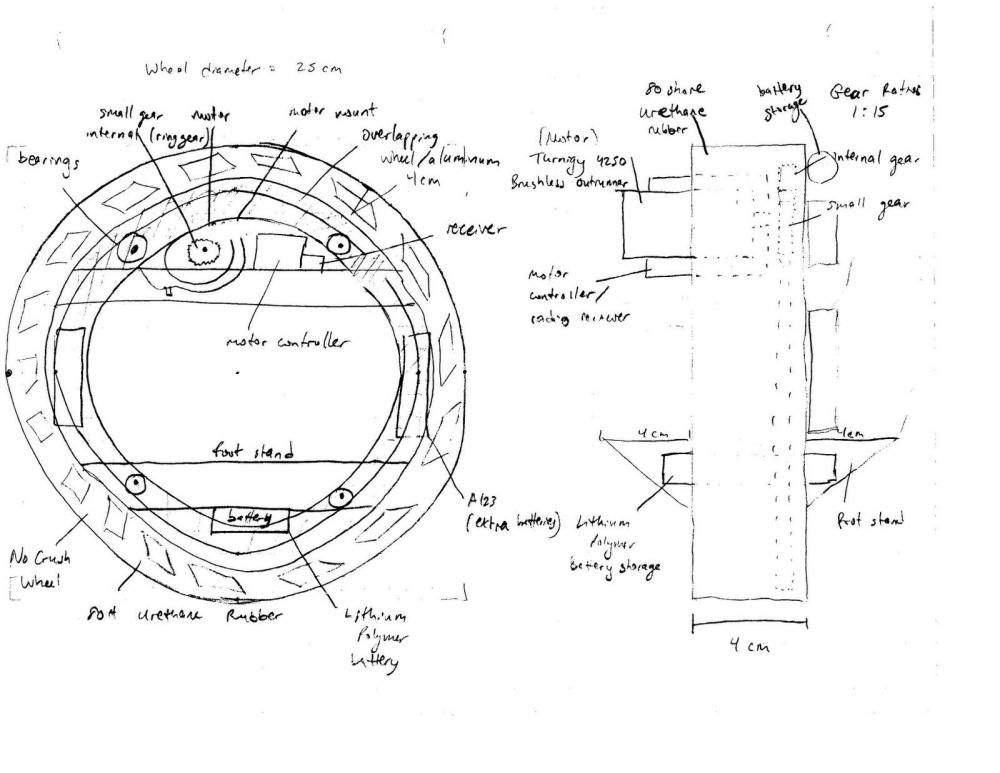 Wheel diameter = 25 cm
small gear
internal (ring gear)
motor
motor mount
overlapping
wheel/aluminum
4cm
bearings
receiver
motor controller
foot stand
battery
A123
(extra batteries)
No Crush
Wheel
80A Urethane Rubber
Lithium
Polymer
battery
80 shore
urethane
rubber
battery
storage
Gear Ratios
1:15
(Motor)
Turnigy 4250
Brushless outrunner
internal gear
small gear
motor
controller/
radio receiver
4cm
4cm
Lithium
Polymer
battery storage
foot stand
4 cm